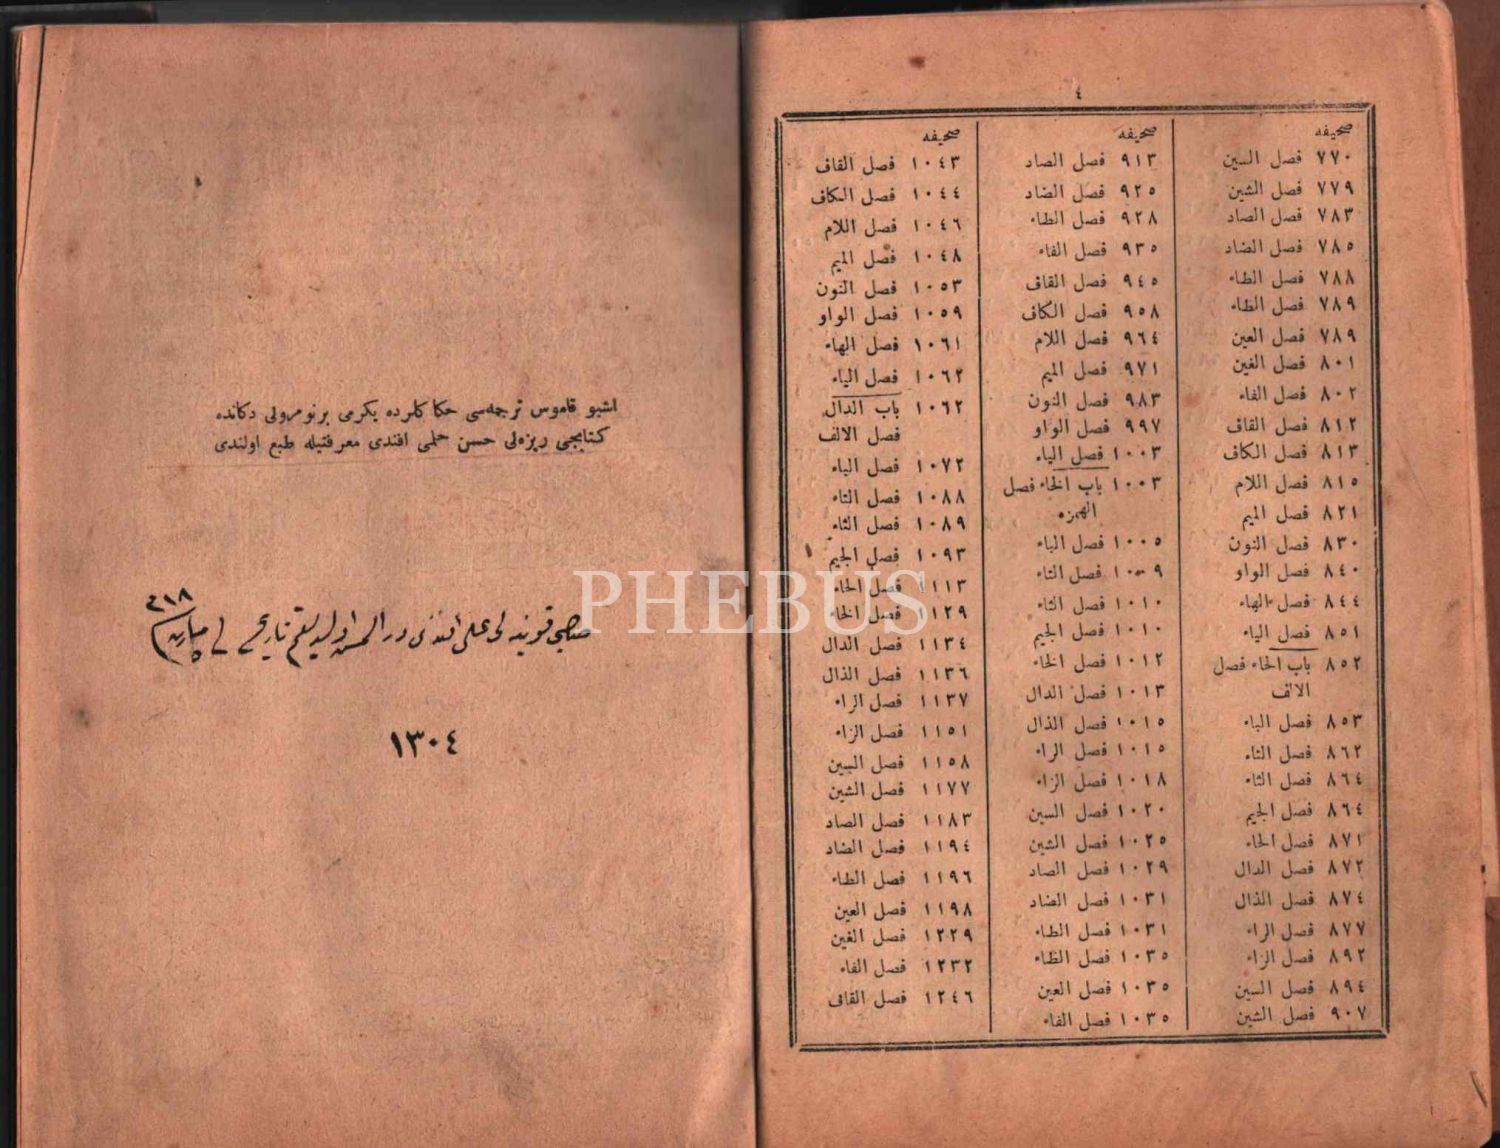 ٤
صحيفه
٧٧٠ فصل السين
٧٧٩ فصل الشين
٧٨٣ فصل الصاد
٧٨٥ فصل الضاد
٧٨٨ فصل الطاء
٧٨٩ فصل الظاء
٧٨٩ فصل العين
٨٠١ فصل الغين
٨٠٢ فصل الفاء
٨١٢ فصل القاف
٨١٣ فصل الكاف
٨١٥ فصل اللام
٨٢١ فصل الميم
٨٣٠ فصل النون
٨٤٠ فصل الواو
٨٤٤ فصل الهاء
٨٥١ فصل الياء
٨٥٢ باب الحاء فصل
الالف
٨٥٣ فصل الباء
٨٦٢ فصل التاء
٨٦٤ فصل الثاء
٨٦٤ فصل الجيم
٨٧١ فصل الحاء
٨٧٢ فصل الدال
٨٧٤ فصل الذال
٨٧٧ فصل الراء
٨٩٢ فصل الزاء
٨٩٤ فصل السين
٩٠٧ فصل الشين
صحيفه
٩١٣ فصل الصاد
٩٢٥ فصل الضاد
٩٢٨ فصل الطاء
٩٣٥ فصل الفاء
٩٤٥ فصل القاف
٩٥٨ فصل الكاف
٩٦٤ فصل اللام
٩٧١ فصل الميم
٩٨٣ فصل النون
٩٩٧ فصل الواو
١٠٠٣ فصل الياء
١٠٠٣ باب الخاء فصل
الهمزه
١٠٠٥ فصل الباء
١٠٠٩ فصل التاء
١٠١٠ فصل الثاء
١٠١٠ فصل الجيم
١٠١٢ فصل الخاء
١٠١٣ فصل الدال
١٠١٥ فصل الذال
١٠١٥ فصل الراء
١٠١٨ فصل الزاء
١٠٢٠ فصل السين
١٠٢٥ فصل الشين
١٠٢٩ فصل الصاد
١٠٣١ فصل الضاد
١٠٣١ فصل الطاء
١٠٣٥ فصل الظاء
١٠٣٥ فصل العين
١٠٣٥ فصل الفاء
صحيفه
١٠٤٣ فصل القاف
١٠٤٤ فصل الكاف
١٠٤٦ فصل اللام
١٠٤٨ فصل الميم
١٠٥٣ فصل النون
١٠٥٩ فصل الواو
١٠٦١ فصل الهاء
١٠٦٢ فصل الياء
١٠٦٢ باب الدال
فصل الالف
١٠٧٢ فصل الباء
١٠٨٨ فصل التاء
١٠٨٩ فصل الثاء
١٠٩٣ فصل الجيم
١١١٣ فصل الحاء
١١٢٩ فصل الخاء
١١٣٤ فصل الدال
١١٣٦ فصل الذال
١١٣٧ فصل الراء
١١٥١ فصل الزاء
١١٥٨ فصل السين
١١٧٧ فصل الشين
١١٨٣ فصل الصاد
١١٩٤ فصل الضاد
١١٩٦ فصل الطاء
١١٩٨ فصل العين
١٢٢٩ فصل الغين
١٢٣٢ فصل الفاء
١٢٤٦ فصل القاف
اشبو قاموس ترجمه‌سى حكا كلرده يكرمى بر نومرولى دكانده
كتابجى ريزه‌لى حسن حلمى افندى معرفتيله طبع اولندى
على افندى
١٣٠٤
PHEBUS